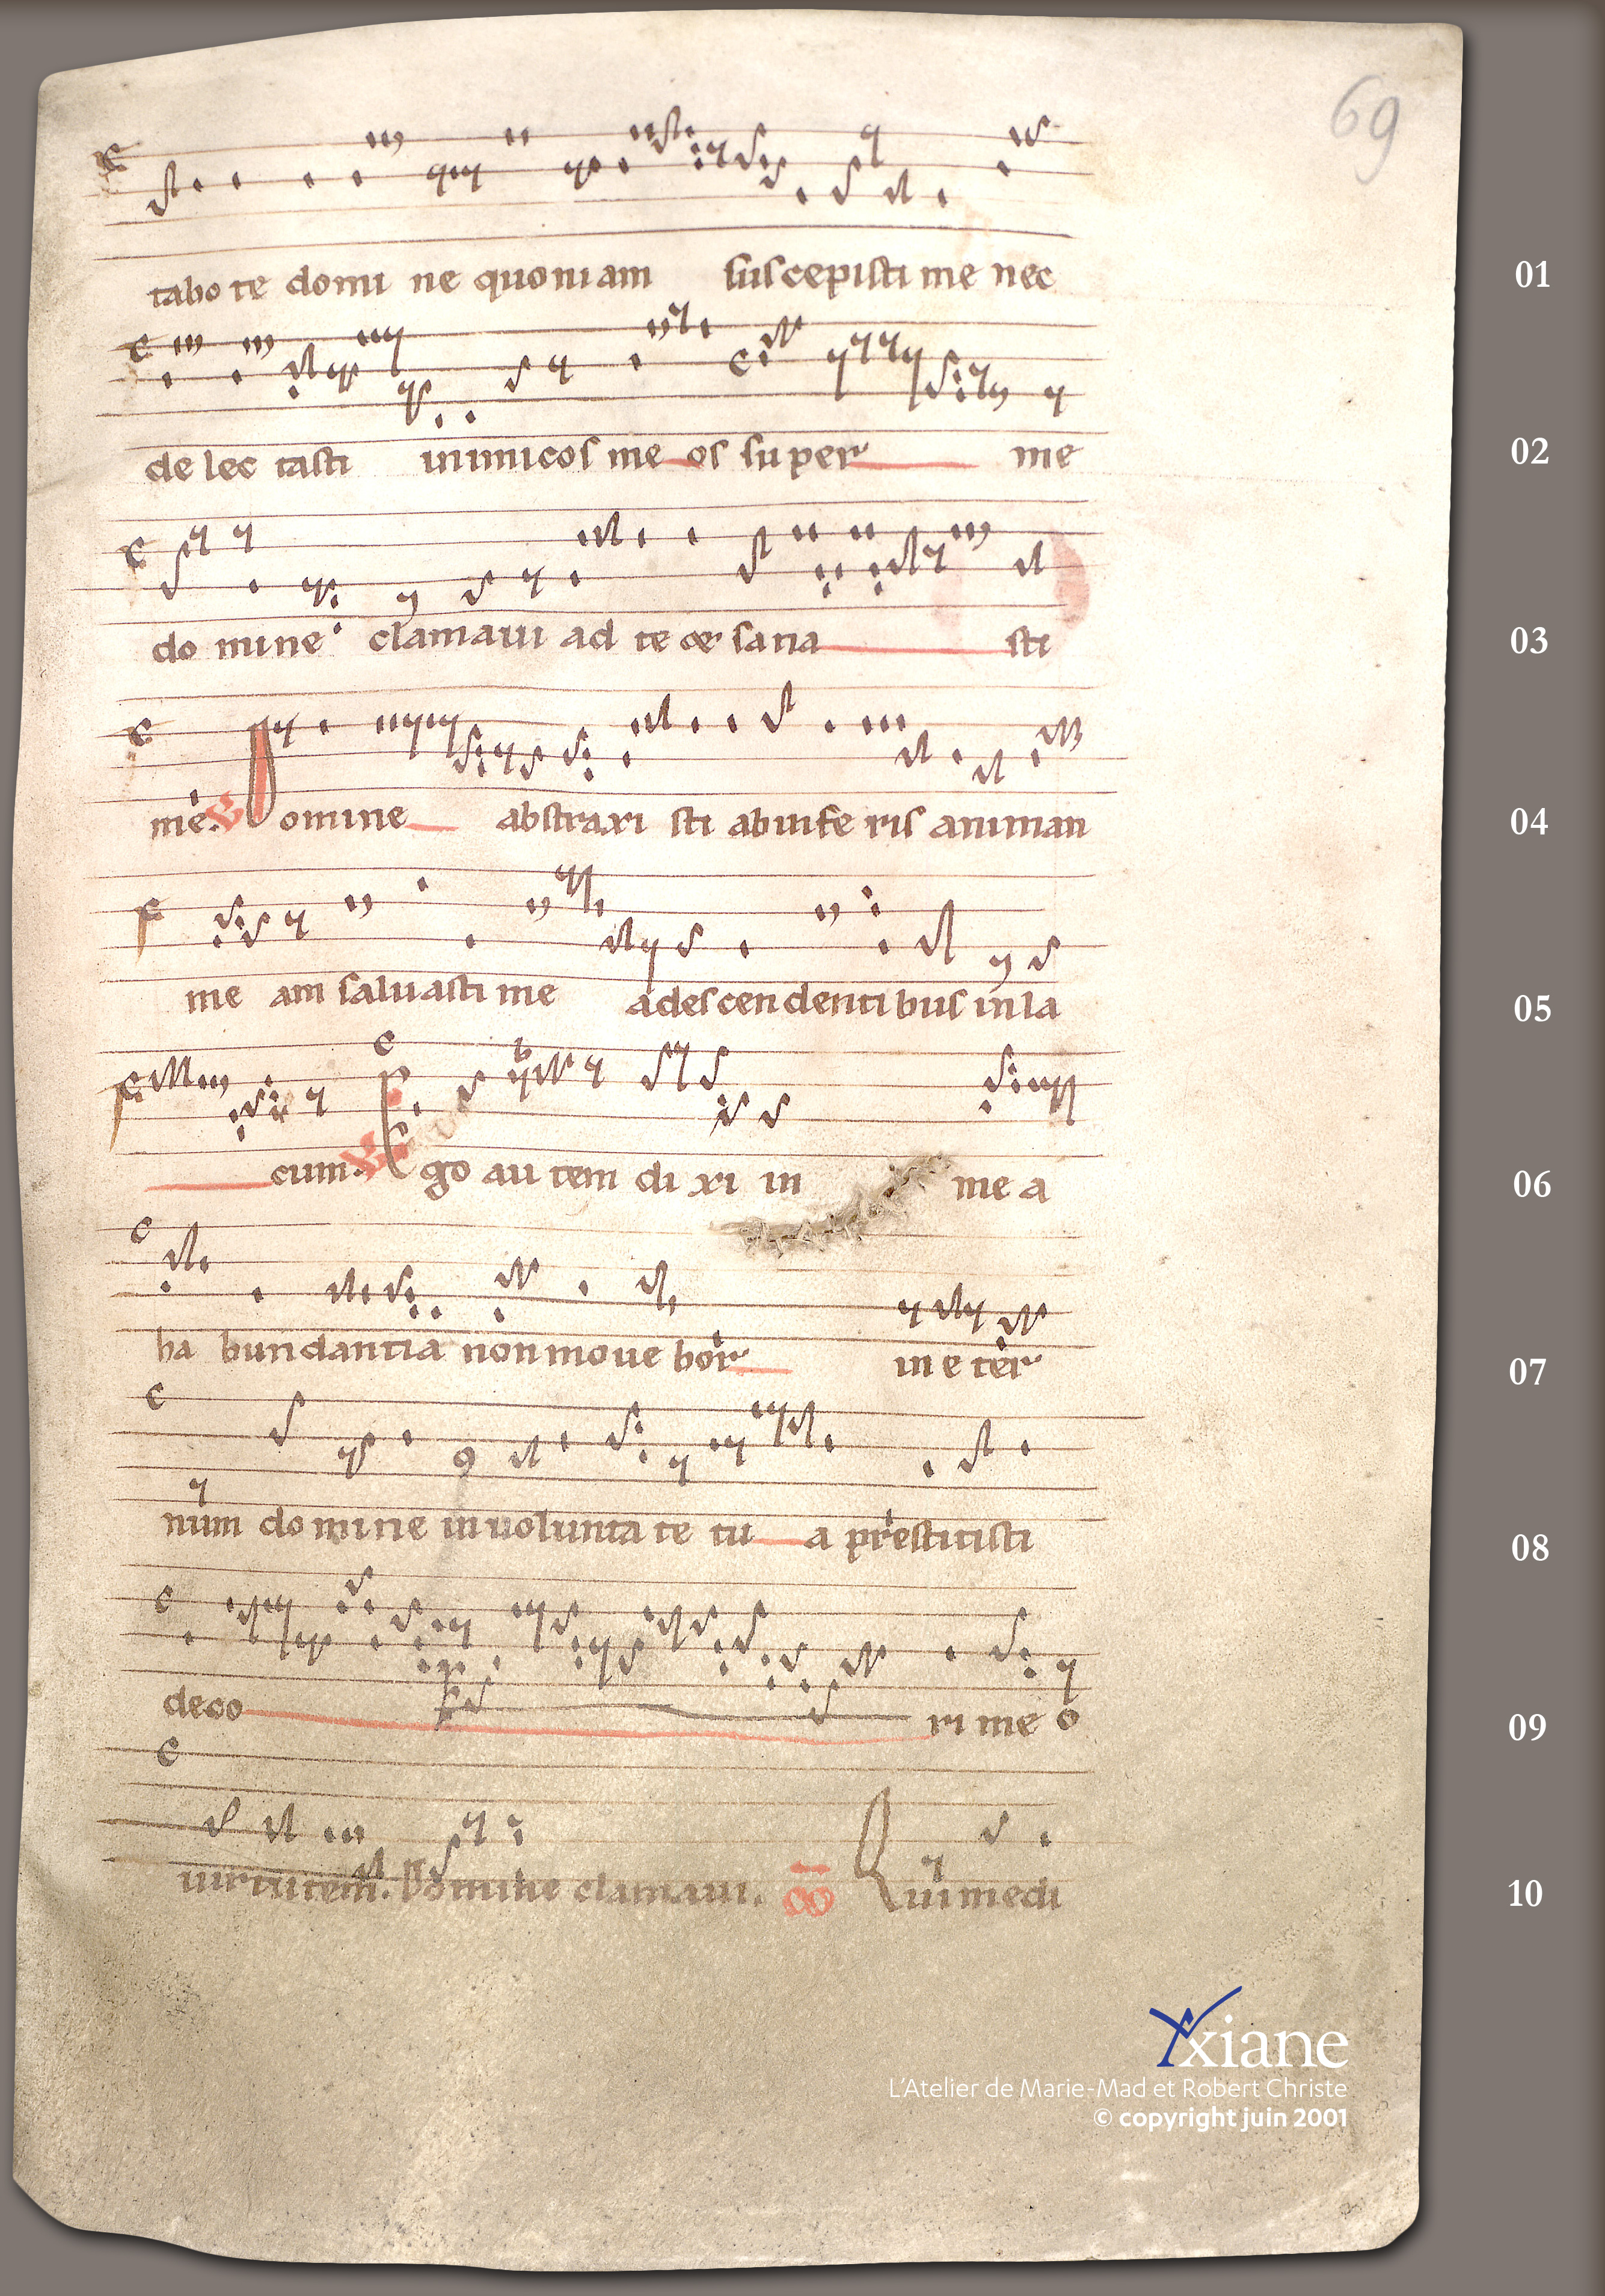 69
tabo te domi ne quoniam suscepisti me nec
01
de lec tasti inimicos me os super me
02
do mine clamaui ad te & sana sti
03
me. V Domine abstraxi sti abinfe ris animan
04
me am saluasti me adescendentibus inla
05
cum. V Ego au tem di xi in me a
06
ha bundantia nonmoue bor in e ter
07
num domine inuolunta te tu a prestitisti
08
deco ri me o
09
uirtutem. Domine clamaui. co Qui medi
10
Yxiane
L'Atelier de Marie-Mad et Robert Christe
© copyright juin 2001